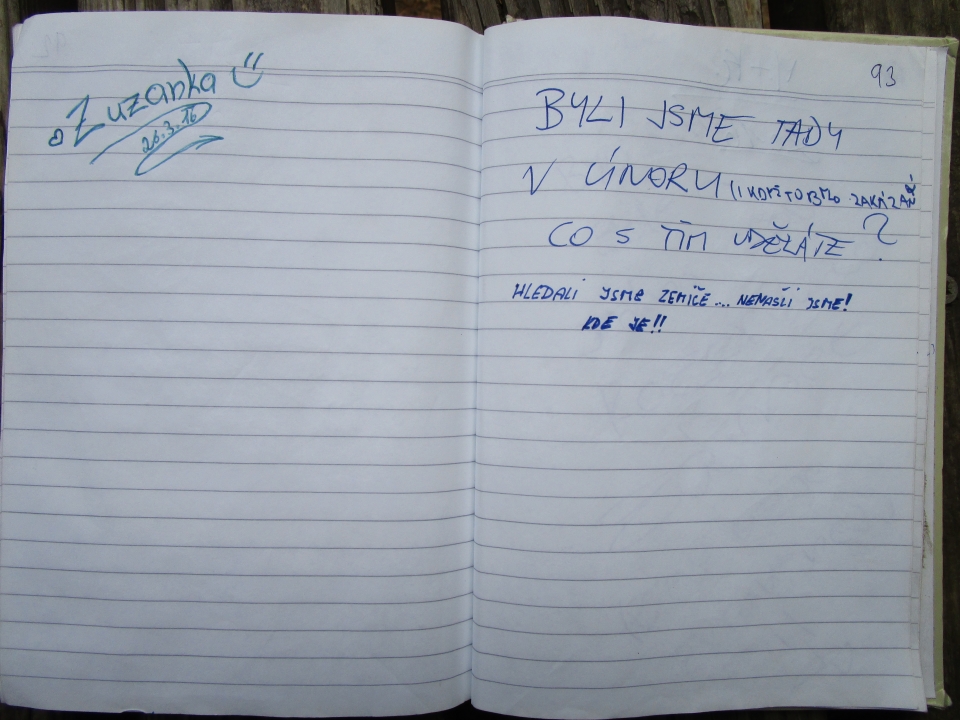 Zuzanka
26.3.16
93
BYLI JSME TADY
V ÚNORU (I KDYŽ TO BYLO ZAKÁZANÉ
CO S TÍM UDĚLÁTE?
HLEDALI JSME ZEMIČE... NENAŠLI JSME!
KDE JE!!